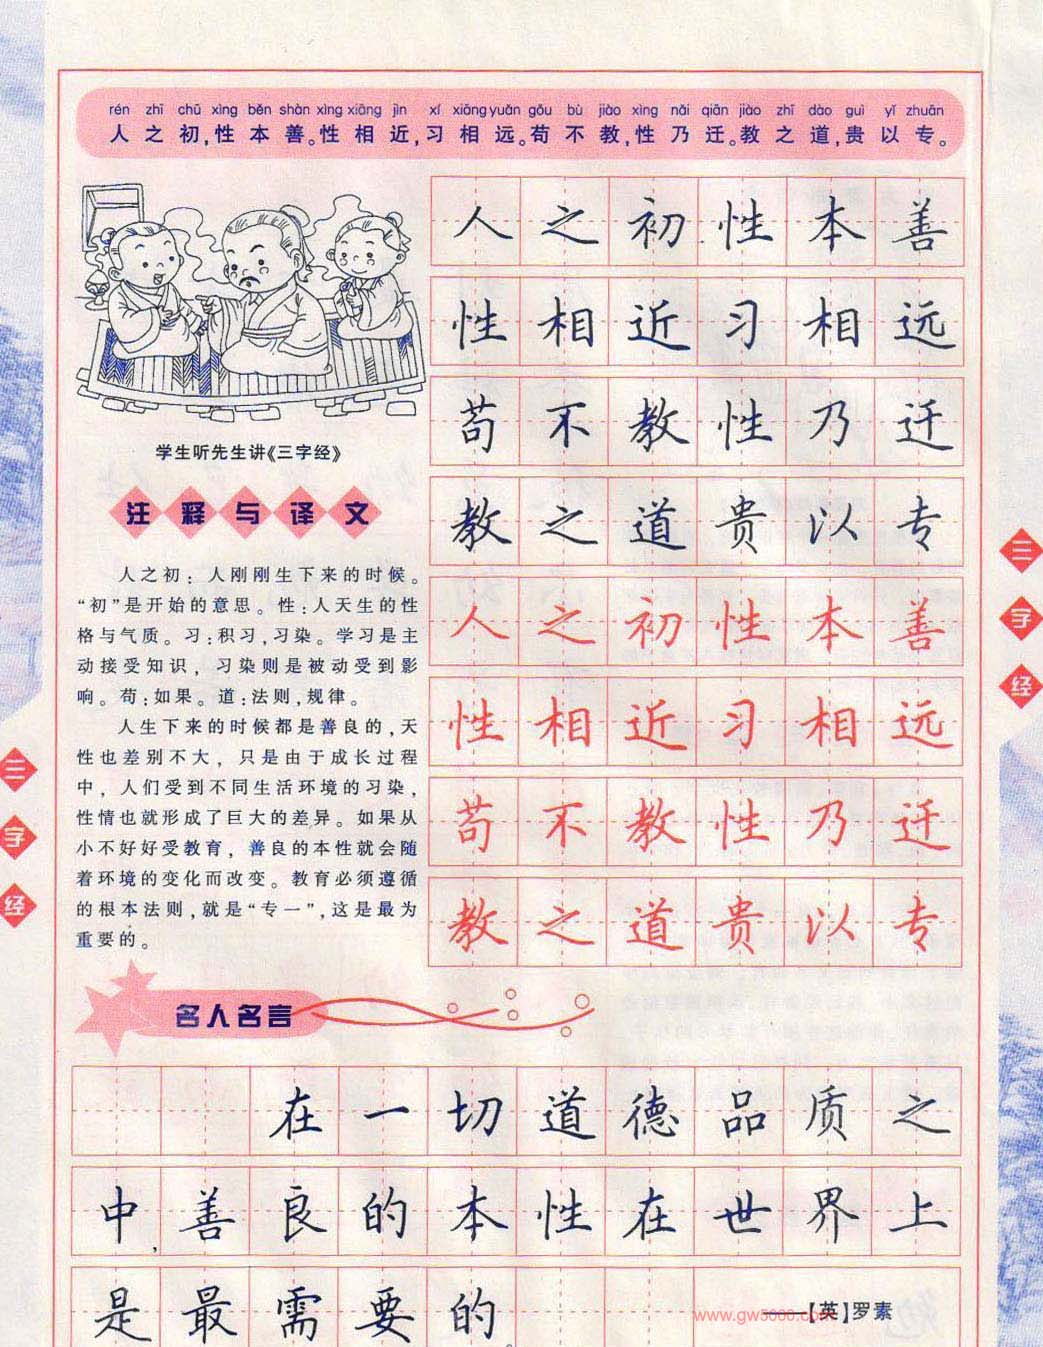 rén zhī chū xìng běn shàn xìng xiāng jìn xí xiāng yuǎn gǒu bù jiào xìng nǎi qiān jiào zhī dào guì yǐ zhuān
人之初,性本善。性相近,习相远。苟不教,性乃迁。教之道,贵以专。
人之初性本善
性相近习相远
苟不教性乃迁
教之道贵以专
人之初性本善
性相近习相远
苟不教性乃迁
教之道贵以专
学生听先生讲《三字经》
注释与译文
人之初：人刚刚生下来的时候。
“初”是开始的意思。性：人天生的性
格与气质。习：积习,习染。学习是主
动接受知识，习染则是被动受到影
响。苟：如果。道：法则,规律。
人生下来的时候都是善良的,天
性也差别不大，只是由于成长过程
中，人们受到不同生活环境的习染，
性情也就形成了巨大的差异。如果从
小不好好受教育，善良的本性就会随
着环境的变化而改变。教育必须遵循
的根本法则,就是“专一”,这是最为
重要的。
三字经
三字经
名人名言
在一切道德品质之
中,善良的本性在世界上
是最需要的
——【英】罗素
www.gw5000.com